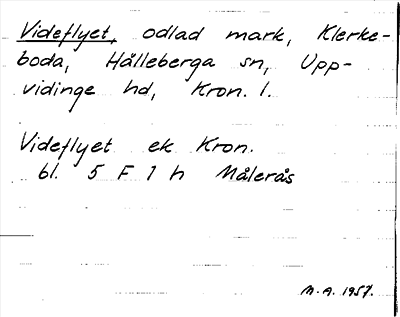 Videflyet, odlad mark, Klerke-
boda, Hälleberga sn, Upp-
vidinge hd, Kron. l.
Videflyet ek Kron.
bl. 5 F 1 h Målerås
M.A. 1957.